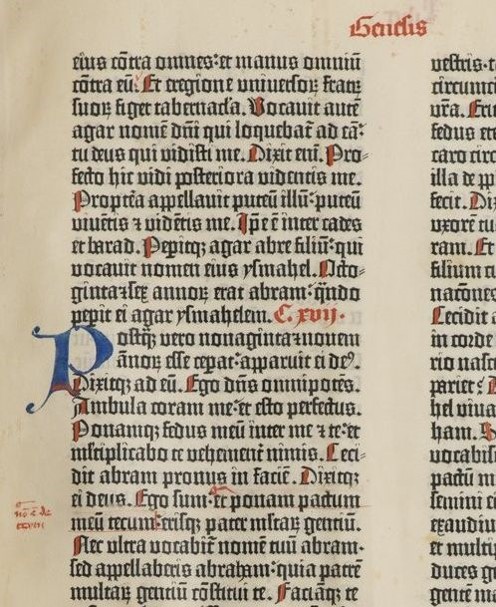 Genesis
eius cōtra omnes: et manus omniū
cōtra eū. Et eregione universoꝝ fratꝝ
suoꝝ figet tabernac̄la. Vocavit autē
agar nomē dn̄i qui loquebat̄ ad eā:
tu deus qui vidisti me. Dixit em̄. Pro-
fecto hic vidi posteriora videntis me.
Proptea appellavit puteū illū: puteū
viuētis ⁊ vidētis me. Ip̄e ē inter cades
et barad. Pepitqꝫ agar abre filiū: qui
vocavit nomen eius ysmahel. Octo-
ginta⁊sex annoꝝ erat abram: qn̄do
pepit ei agar ysmahelem. C. xvij.
Postqꝫ vero nonaginta⁊nouem
annoꝝ esse cepat: apparuit ei deꝰ.
Dixitqꝫ ad eū. Ego dn̄s omnipotēs.
Ambula coram me: et esto perfectus.
Ponamqꝫ fedus meū inter me ⁊ te: et
multiplicabo te vehement̄ nimis. Ceci-
dit abram pronus in faciē. Dixitqꝫ
ei deus. Ego sum: et ponam pactum
meū tecum: erisqꝫ pater multaꝝ gentiū.
Nec ultra vocabit̄ nomē tuū abram:
sed appellaberis abraham: quia patrē
multaꝝ gentiū cōstitui te. Faciāqꝫ te
vestris.
circumci
vr̄a.
fedus ete
caro circ
illa de pp̄l
fecit. Dix
uxorē tu
ram. Et
filium cu
nacōnes
Cecidit a
in corde
rio nasc
pariet? D
hel viva
ham.
vocabis
pactū m
semini e
exaudiu
et multip
duces ge
gentē ma